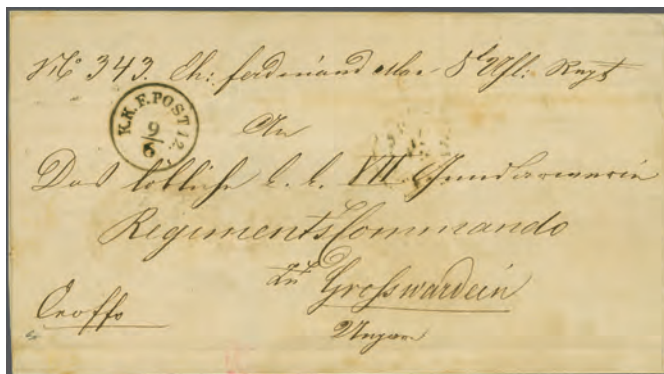 No 343. Eh: ferdinand Uhl: Regt
K.K.F.POST 12.
9/6
An
Das löbliche k. k. VII. Gendarmerie
Regiments Commando
zu Grosswardein
Ungarn
Exoffo